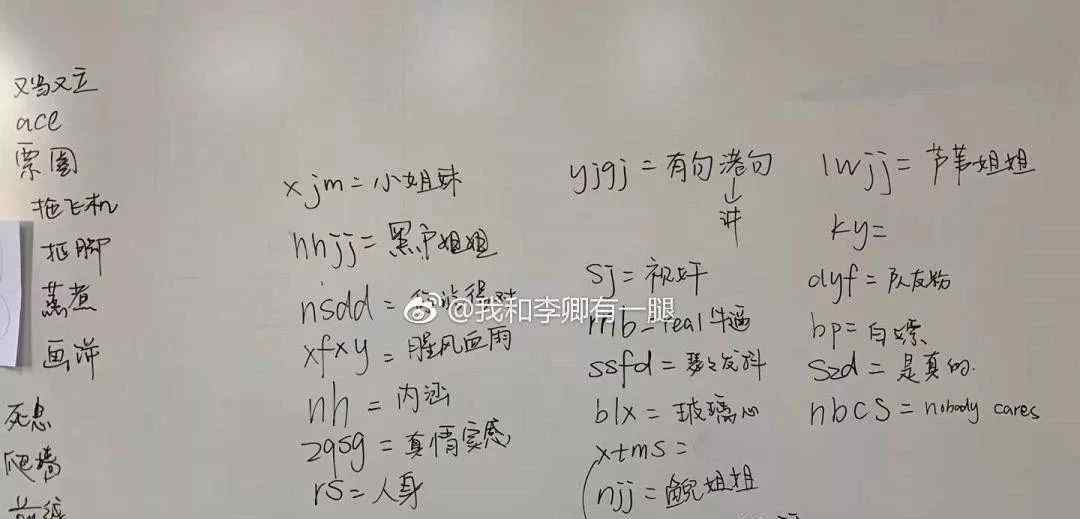 又鸟又立
ace
票圈
拖飞机
抠脚
蒸煮
画滞
死忠
爬墙
前线
xjm=小姐妹
hhjj=黑户姐姐
nsdd=
xfxy=腥风血雨
nh=内涵
zqsg=真情实感
rs=人身
yjgj=有句港句
讲
sj=视奸
rnb=real牛逼
ssfd=瑟瑟发抖
blx=玻璃心
xtms=
njj=鲵姐姐
lwjj=芦苇姐姐
ky=
dyf=队友粉
bp=白嫖
szd=是真的.
nbcs=nobody cares
@我和李卿有一腿